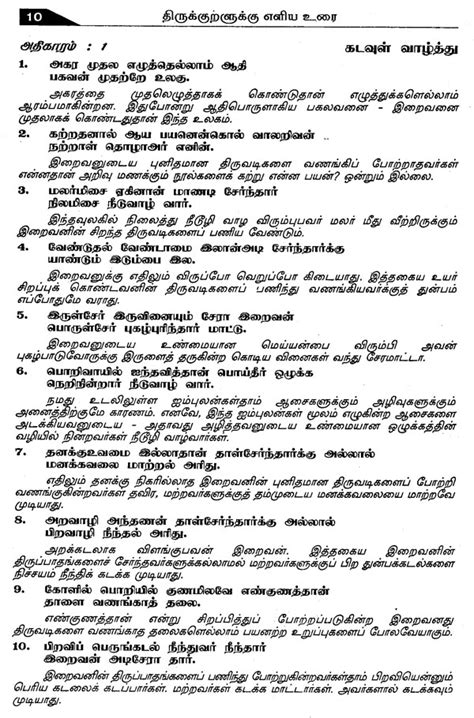 10 திருக்குறளுக்கு எளிய உரை
அதிகாரம் : 1 கடவுள் வாழ்த்து
1. அகர முதல எழுத்தெல்லாம் ஆதி
பகவன் முதற்றே உலகு.
அகரத்தை முதலெழுத்தாகக் கொண்டுதான் எழுத்துக்களெல்லாம்
ஆரம்பமாகின்றன. இதுபோன்று ஆதிபொருளாகிய பகலவனை - இறைவனை
முதலாகக் கொண்டதுதான் இந்த உலகம்.
2. கற்றதனால் ஆய பயனென்கொல் வாலறிவன்
நற்றாள் தொழாஅர் எனின்.
இறைவனுடைய புனிதமான திருவடிகளை வணங்கிப் போற்றாதவர்கள்
என்னதான் அறிவு மணக்கும் நூல்களைக் கற்று என்ன பயன்? ஒன்றும் இல்லை.
3. மலர்மிசை ஏகினான் மாணடி சேர்ந்தார்
நிலமிசை நீடுவாழ் வார்.
இந்தவுலகில் நிலைத்து நீடூழி வாழ விரும்புபவர் மலர் மீது வீற்றிருக்கும்
இறைவனின் சிறந்த திருவடிகளைப் பணிய வேண்டும்.
4. வேண்டுதல் வேண்டாமை இலான்அடி சேர்ந்தார்க்கு
யாண்டும் இடும்பை இல.
இறைவனுக்கு எதிலும் விருப்போ வெறுப்போ கிடையாது. இத்தகைய உயர்
சிறப்புக் கொண்டவனின் திருவடிகளைப் பணிந்து வணங்கியவர்க்குத் துன்பம்
எப்போதுமே வராது.
5. இருள்சேர் இருவினையும் சேரா இறைவன்
பொருள்சேர் புகழ்புரிந்தார் மாட்டு.
இறைவனுடைய உண்மையான மெய்யன்பை விரும்பி அவன்
புகழ்பாடுவோருக்கு இருளைத் தருகின்ற கொடிய வினைகள் வந்து சேரமாட்டா.
6. பொறிவாயில் ஐந்தவித்தான் பொய்தீர் ஒழுக்க
நெறிநின்றார் நீடுவாழ் வார்.
நமது உடலிலுள்ள ஐம்புலன்கள்தாம் ஆசைகளுக்கும் அழிவுகளுக்கும்
அனைத்திற்குமே காரணம். எனவே, இந்த ஐம்புலன்கள் மூலம் எழுகின்ற ஆசைகளை
அடக்கியவனுடைய - அதாவது அழித்தவனுடைய உண்மையான ஒழுக்கத்தின்
வழியில் நின்றவர்கள் நீடூழி வாழ்வார்கள்.
7. தனக்குஉவமை இல்லாதான் தாள்சேர்ந்தார்க்கு அல்லால்
மனக்கவலை மாற்றல் அரிது.
எதிலும் தனக்கு நிகரில்லாத இறைவனின் புனிதமான திருவடிகளைப் போற்றி
வணங்குகின்றவர்கள் தவிர, மற்றவர்களுக்குத் தம்முடைய மனக்கவலையை மாற்றவே
முடியாது.
8. அறவாழி அந்தணன் தாள்சேர்ந்தார்க்கு அல்லால்
பிறவாழி நீந்தல் அரிது.
அறக்கடலாக விளங்குபவன் இறைவன். இத்தகைய இறைவனின்
திருப்பாதங்களைச் சேர்ந்தவர்களுக்கல்லாமல் மற்றவர்களுக்குப் பிற துன்பக்கடல்களை
நிச்சயம் நீந்திக் கடக்க முடியாது.
9. கோளில் பொறியில் குணமிலவே எண்குணத்தான்
தாளை வணங்காத் தலை.
எண்குணத்தான் என்று சிறப்பித்துப் போற்றப்படுகின்ற இறைவனது
திருவடிகளை வணங்காத தலைகளெல்லாம் பயனற்ற உறுப்புகளைப் போலவேயாகும்.
10. பிறவிப் பெருங்கடல் நீந்துவர் நீந்தார்
இறைவன் அடிசேரா தார்.
இறைவனின் திருப்பாதங்களைப் பணிந்து போற்றுகின்றவர்கள்தாம் பிறவியென்னும்
பெரிய கடலைக் கடப்பார்கள். மற்றவர்கள் கடக்க மாட்டார்கள். அவர்களால் கடக்கவும்
முடியாது.